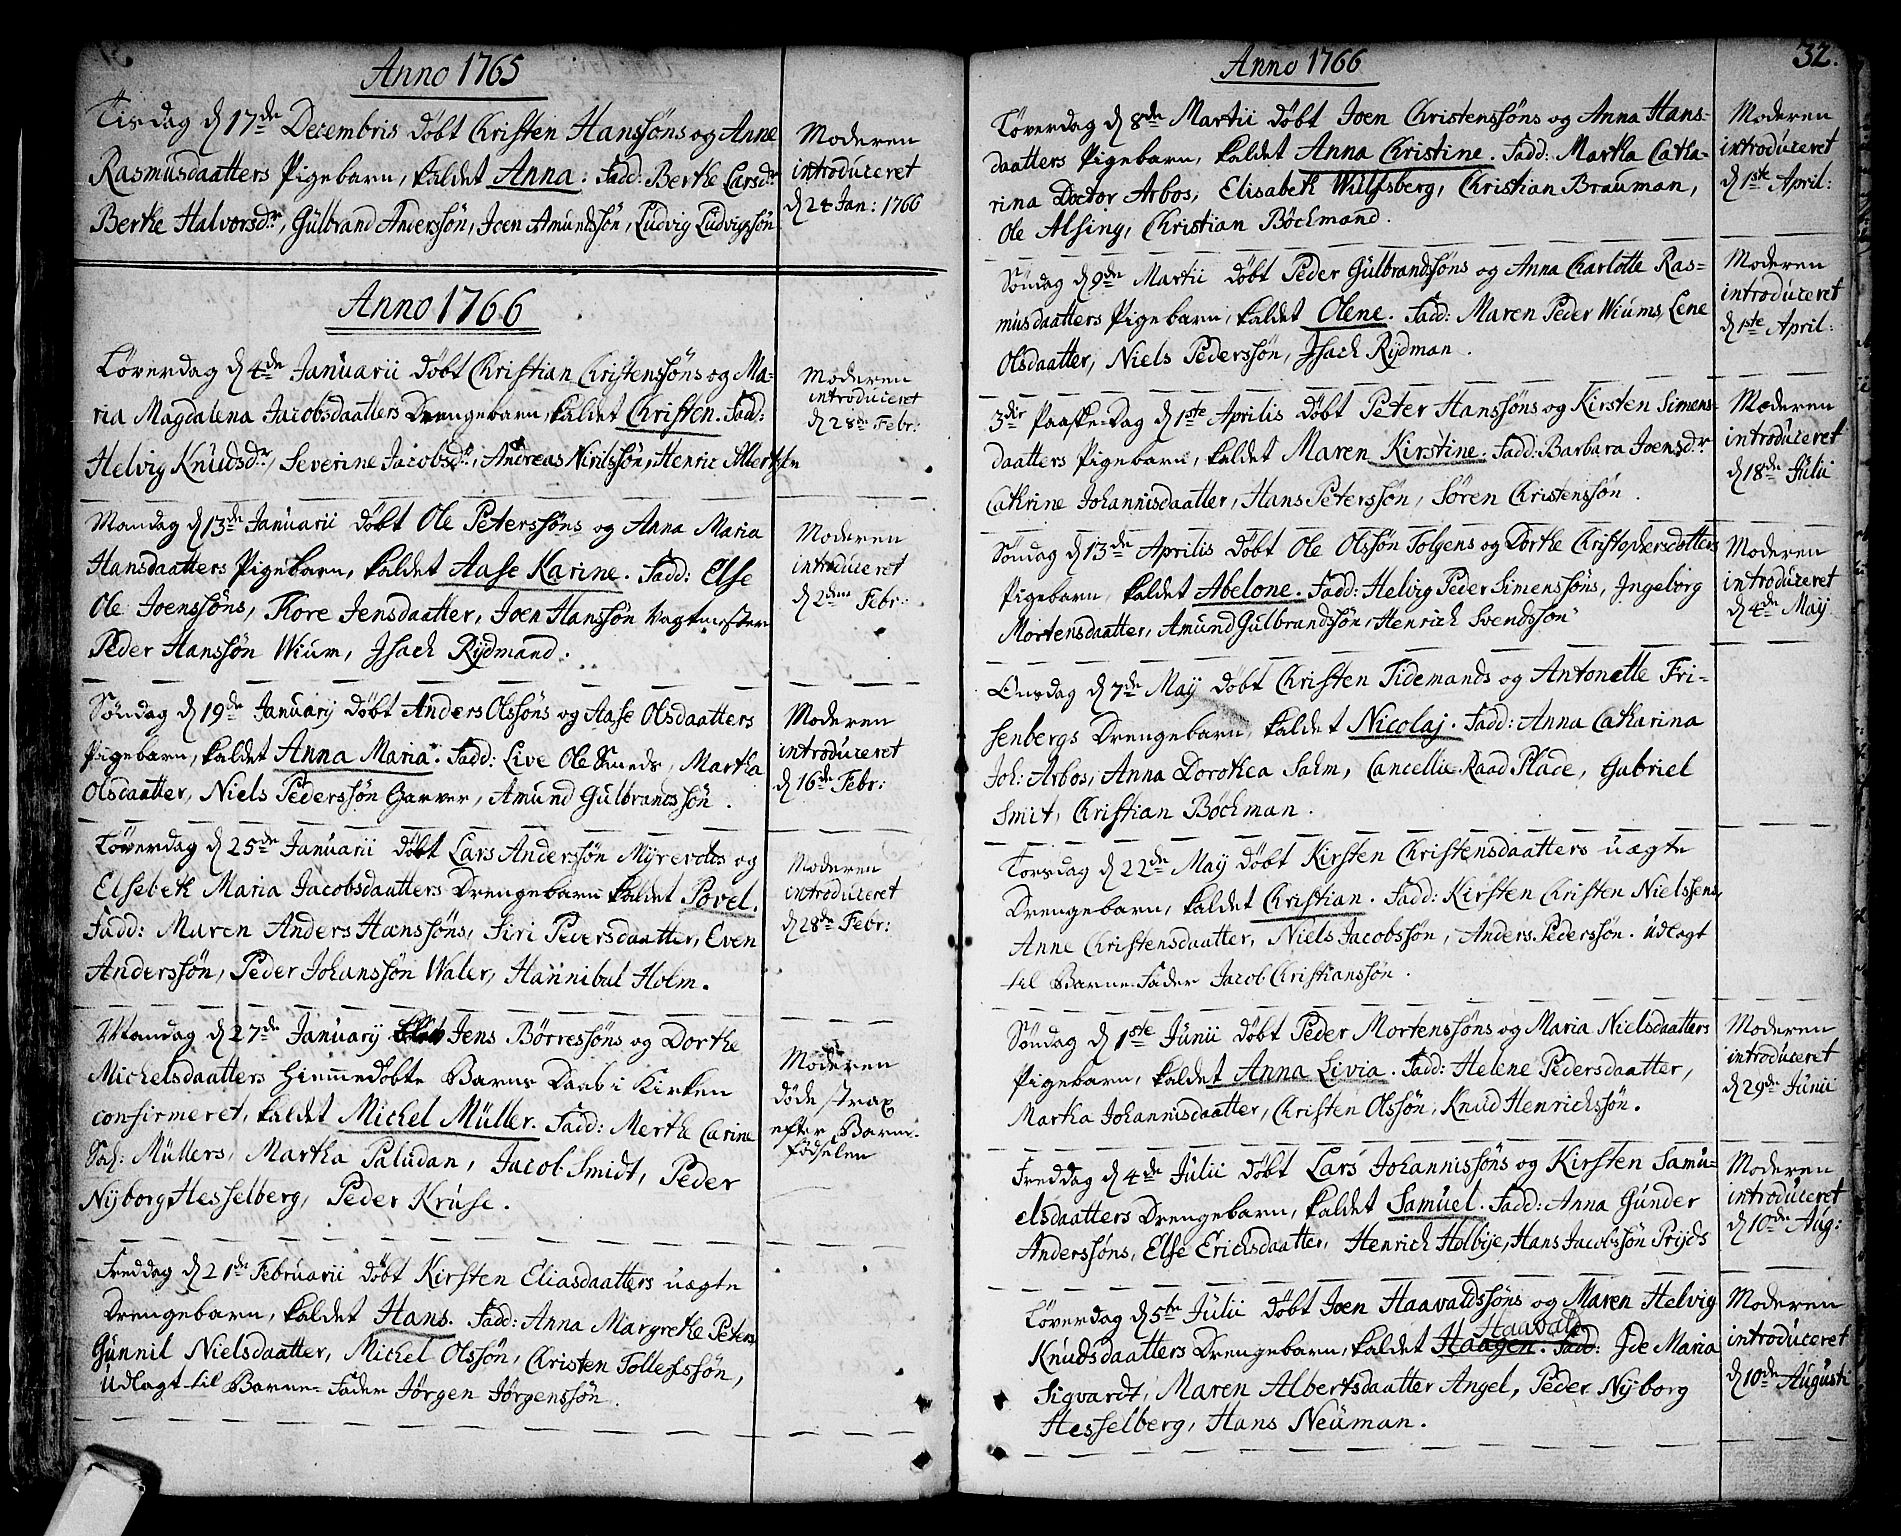 Anno 1765
Tisdag d 17de Decembris döbt Christen Hanssöns og Anne
Rasmusdaatters Pigebarn, kaldet Anna. Fadd: Berthe Larsdr
Berthe Halvorsdr, Gülbrand Anderssön, Joen Amündssön, Ludvig Ludvigssön
Moderen
introdüceret
d 24 Jan: 1766
Anno 1766
Löverdag d 4de Januarii döbt Christian Christenssöns og Ma-
ria Magdalena Jacobsdaatters Drengebarn, kaldet Christen. Fadd:
Helvig Knüdsdr, Severine Jacobsdr, Andreas Nirilssön, Henric Albertsen
Moderen
introdüceret
d 28de Febr:
Mandag d 13de Januarii döbt Ole Peterssöns og Anna Maria
Hansdaatters Pigebarn, kaldet Aase Karine. Fadd: Else
Ole Joenssöns, Thore Jensdaatter, Joen Hanssön Vagtmester
Peder Hanssön Wium, Isach Rÿdmand.
Moderen
introdüceret
d 2den Febr:
Söndag d 19de Januarÿ döbt Anders Olssöns og Aase Olsdaatters
Pigebarn, kaldet Anna Maria. Fadd: Live Ole Smeds, Martha
Olsdaatter, Niels Pederssön Garver, Amünd Gülbrandssön.
Moderen
introdüceret
d 16de Febr:
Löverdag d 25de Januarii döbt Lars Anderssön Mÿrerdes og
Elsebeth Maria Jacobsdaatters Drengebarn kaldet Povel.
Fadd: Maren Anders Hanssöns, Siri Pedersdaatter, Even
Anderssön, Peder Johanssön Waler, Hannibal Holm.
Moderen
introdüceret
d 28de Febr:
Mandag d 27de Januarÿ Jens Börressöns og Dorthe
Michelsdaatters Hiemmedöbte Barns Daab i Kirken
confirmeret, kaldet Michel Müller. Fadd: Merthe Carine
Sah: Müllers, Martha Paludan, Jacob Smidt, Peder
Nÿborg Hesselberg, Peder Krüse.
Moderen
döde strax
efter Barne-
födselen
Freddag d 21de Februarii döbt Kirsten Eliasdaatters uægte
Drengebarn, kaldet Hans. Fadd: Anna Margrethe Peters,
Günnil Nielsdaatter, Michel Olssön, Christen Tollefssön,
Udlagt til Barne-Fader Jörgen Jörgenssön.
Anno 1766
32.
Löverdag d 8de Martii döbt Joen Christenssöns og Anna Hans-
daatters Pigebarn, kaldet Anna Christine. Fadd: Martha Catha-
rina Doctor Arbos, Elisabeth Wülfsberg, Christian Brauman,
Ole Alsing, Christian Böchmand.
Moderen
introdüceret
d 1ste April:
Söndag d 9de Martii döbt Peder Gülbrandssöns og Anna Charlotte Ras-
musdaatters Pigebarn, kaldet Olene. Fadd: Maren Peder Wiums, Lene
Olsdaatter, Niels Pederssön, Isach Rÿdman.
Moderen
introdüceret
d 1ste April:
3dir Paaske-Dag d 1ste Aprilis döbt Peter Hanssöns og Kirsten Simens-
daatters Pigebarn, kaldet Maren Kirstine. Fadd: Barbara Joensdr
Cathrine Johannisdaatter, Hans Peterssön, Sören Christenssön.
Moderen
introdüceret
d 18de Jülii
Söndag d 13de Aprilis döbt Ole Olssön Tolgens og Dorthe Christophersdotters
Pigebarn kaldet Abelone. Fadd: Helvig Peder Simenssöns, Ingeborg
Mortensdaatter, Amünd Gülbrandssön, Henrich Svendssön
Moderen
introdüceret
d 4de Maÿ
Onsdag d 7de Maÿ döbt Christen Tidemands og Antonette Fri-
senbergs Drengebarn, kaldet Nicolaj. Fadd: Anna Catharina
Joh: Arbos, Anna Dorothea Sahm, Cancellie-Raad Plade, Gabriel
Smit, Christian Böchman.
Torsdag d 22de Maÿ döbt Kirsten Christensdaatters uægte
Drengebarn, kaldet Christian. Fadd: Kirsten Christen Nielssens,
Anne Christensdaatter, Niels Jacobssön, Anders Pederssön. Udlagt
til Barne-Fader Jacob Christianssön.
Söndag d 1ste Junii döbt Peder Mortenssöns og Maria Nielsdaatters
Pigebarn, kaldet Anna Livia. Fadd: Helene Pedersdaatter,
Martha Johannisdaatter, Christen Olssön, Knud Henrichssön.
Moderen
introdüceret
d 29de Junii
Freddag d 4de Julii döbt Lars Johannissöns og Kirsten Samü-
elsdaatters Drengebarn, kaldet Samüel. Fadd: Anna Günder
Anderssöns, Else Erichsdaatter, Henrich Holbÿe, Hans Jacobssön Prÿds
Moderen
introdüceret
d 10de Aug:
Löverdag d 5te Jülii döbt Joen Haavaldssöns og Maren Helvig
Haavald
Knüdsdaatters Drengebarn, kaldet Haagen. Fadd: Ide Maria
Sigvardt, Maren Albertsdaatter Angel, Peder Nÿborg
Hesselberg, Hans Neüman.
Moderen
introdüceret
d 10de Augusti